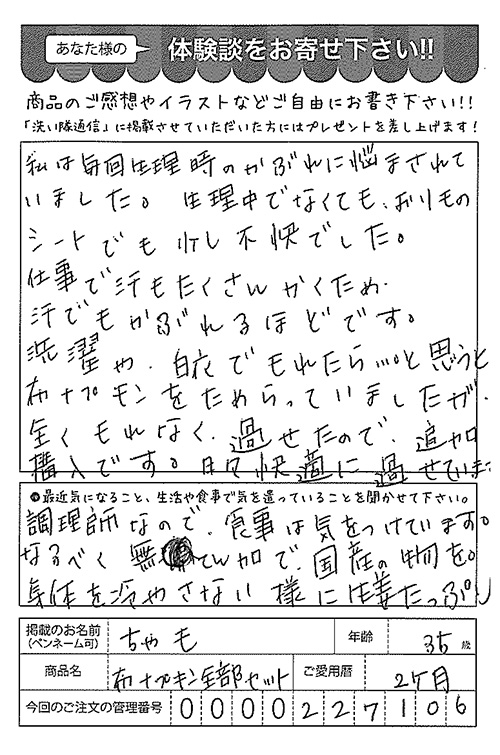 あなた様の 体験談をお寄せ下さい!!
商品のご感想やイラストなどご自由にお書き下さい!!
「洗い隊通信」に掲載させていただいた方にはプレゼントを差し上げます!
私は毎回生理時のかぶれに悩まされて
いました。生理中でなくても、おりもの
シートでも少し不快でした。
仕事で汗もたくさんかくため、
汗でもかぶれるほどです。
洗濯や、白衣でもれたら…。と思うと
布ナプキンをためらっていましたが、
全くもれなく、過せたので、追加
購入です。日々快適に過せています
●最近気になること、生活や食事で気を遣っていることを聞かせて下さい。
調理師なので、食事は気をつけています。
なるべく無 てん加で、国産の物を。
身体を冷やさない様に生姜たっぷり
掲載のお名前 ちゃも 年齢 35歳
(ペンネーム可)
商品名 布ナプキン全部セット ご愛用暦 2ヶ月
今回のご注文の管理番号 0000227106